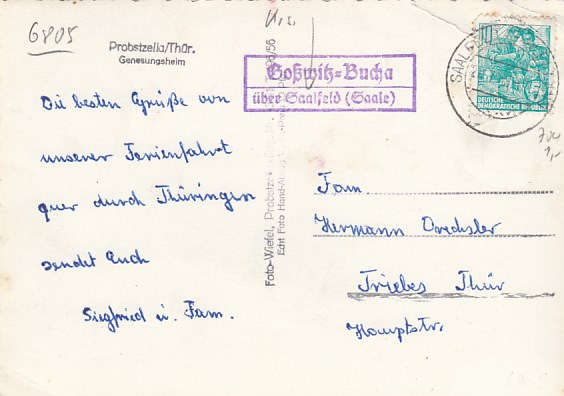 6805
Probstzella/Thür.
Genesungsheim
Die besten Grüße von
unserer Ferienfahrt
quer durch Thüringen
sendet Euch
Siegfried u. Fam.
Goßwitz-Bucha
über Saalfeld (Saale)
Foto-Wiefel, Probstz
Echt Foto Hand-A
SAALF
10
DEUTSCHE
DEMOKRATISCHE REPUBLIK
Fam.
Hermann Drechsler
Triebes Thür
Hauptstr.